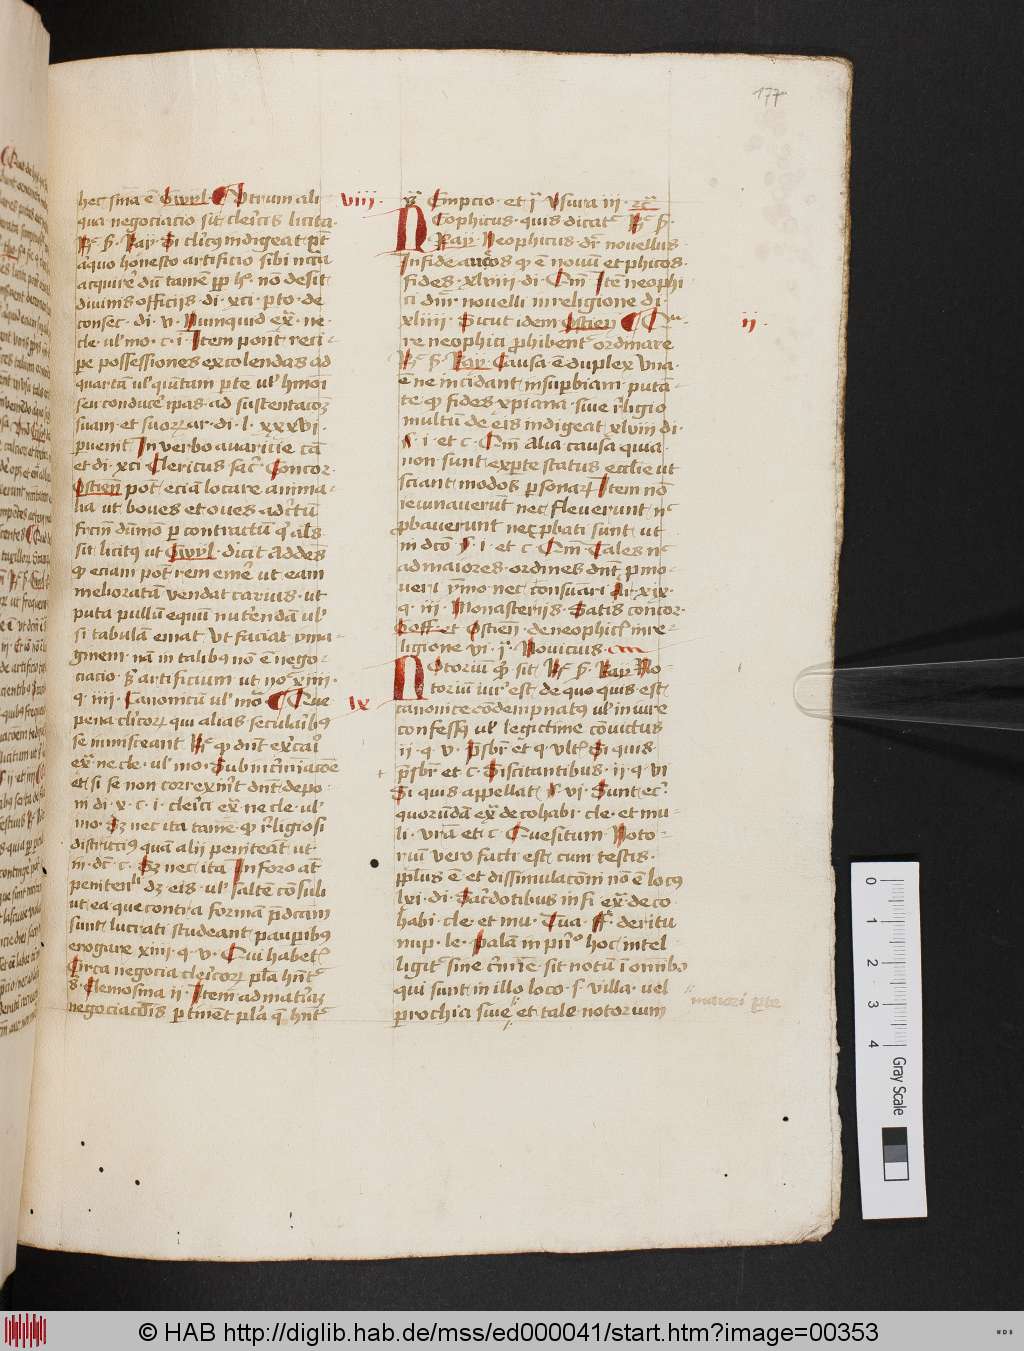 177
hec sīa ē Gwyl · Utrum ali
qua negociacio sit clericis licita ·
Rͨ s̄ · Ray · Si clīcus indigeat pōt
aquo honesto artificio sibi nccīa
acquirere dū tamē ꝑꝑ h͛ · nō desīt
diuinis officijs · di · xci · pto · de
consec · di · v · Nunquid ex̄ · ne ·
cle · ul mo · c · i · Item pont reci
pe possessiones excolendas ad
quartā ul quītam ꝑte ul hmōi
seu conducē ipas · ad sustentacōꝫ
suam · et suoꝝ ar · di · l · xxxvi ·
ꝓuenit In verbo auaricie cā
et di · xci Clericus sac͛ · Concor ·
Ostieñ pot eciā locare anima
lia ut boues et oues ad c͛tū
t͛cm dūmō ꝑ contractū q̄ als
sit licitus ut Gwyl · dicit addēs
ꝙ eciam pōt rem emē ut eam
melioratam vendat carius · ut
puta pullū equū nut͛endā ul
si tabulam emat ut faciat yma
ginem · nā in talibus nō ē nego
ciacio sꝫ artificium ut no · xiiii ·
q · iiii · Canonicū ul mō · Que
pena clīcoꝝ qui alias secularibus
se inmisceant Rͨ ꝙ dn̄t ex͛cari
ex̄ · ne cle · ul mo · Sub int͛minacōe
et si se non correxīt dn̄t depo
ni di · x · c · i · cleīci ex̄ ne cle · ul
mo · Sꝫ nec ita tamē ꝙ r͛ligiosi
districcius quā alij peniteāt ut
in · dc̄t c · Sꝫ nec ita In foro at̄
penitenli dꝫ eis · ul saltē cōsuli
ut ea que contra formā p̄dcām
sunt lucrati studeant pauꝑibus
erogare xiiii · q · v · Qui habetͨ
Circa negocia cleīcoꝝ pl̄a hn̄tͨ
s · Elemosina ii · Item ad matīaꝫ
negociacōis ꝑtinēt pl̄a q̄ hn̄tͨ
viii · Empcio · et ī Usura iii · rc̄
Neophicus · quis dicatͨ Rͨ s̄ ·
Ray Neophicus · dr̄ nouellus ·
In fide a neos ꝙ ē nouū et phicos ·
fides · xlviii · di · Cm̄ Itē neophi
ci dn̄r nouelli in religione di ·
xliiii · Sicut idem Ostieñ Qu ·
ii ·
re neophici ꝓhibentͨ ordinare
Rͨ s̄ · Ray · Causa ē duplex una ·
ē ne incidant in suꝑbiam putā
te ꝙ fides xpiana · siue r͛ligio
multū de eis indigeat xlviii di ·
s · i · et c · Cm̄ alia causa quia
non sunt exꝑte status ecclie ut
sciant modos ꝑsonaꝝ Item nō
ieiunauerūt nec fleuerunt nͨ
ꝓbauerunt nec ꝓbati sunt ut
in dc̄o s · i · et c · Cm̄ Tales nͨ
ad maiores · ordines dn̄t ꝓmo
ueri ymo nec consuārī Ar xix ·
q · iii · Monasterijs · Satis concor
Goff · et Ostieñ · de neophicͨ in re
ligione vi · ī · Nouicius ·
Notoriū qd̄ sit Rͨ s̄ · Ray No
toriū iur͛ est de quo quis est
ix
canonice cōdempnatus ul in iure
confessus ul legitime cōuictus
ii · q · v · p̄sbr̄ et q · ult͛ Si quis
p̄sbr̄ et c · Siscitantibus · ii · q · vi
Si quis appellat · s · vi · Sunt · ec̄ ·
quorūdā ex̄ de cohabi · cle · et mu
li · vrā et c · Quesitum Noto
riū vero facti est cum testis ·
ꝑplus ē et dissimulacōni nō ē locus
lvi · di · Sac͛dotibus in fi ex̄ · de co
habi · cle · et mu · Tua · ff̄ · de ritu
nup · le · Palā in pn̄o hoc intel
ligitͨ sine c͛mīe sit notū ī omībo
qui sunt in illo loco · s · villa · uel
maiori ꝑte
ꝑrochici siue et tale notorium
0 1 2 3 4
Gray Scale
© HAB http://diglib.hab.de/mss/ed000041/start.htm?image=00353